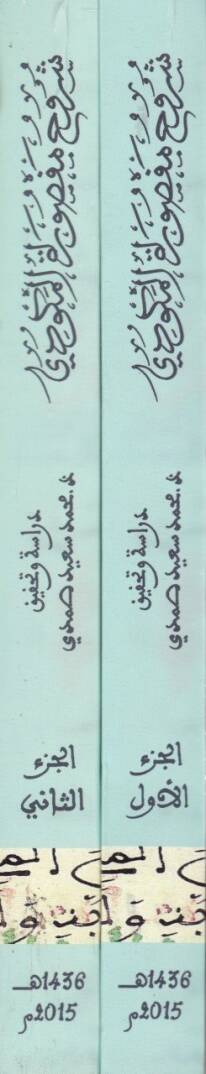 شروح مقصورة المكودي
دراسة وتحقيق
د. محمد سعيد حمدي
الجزء
الأول
1436هـ
2015م
شروح مقصورة المكودي
دراسة وتحقيق
د. محمد سعيد حمدي
الجزء
الثاني
1436هـ
2015م